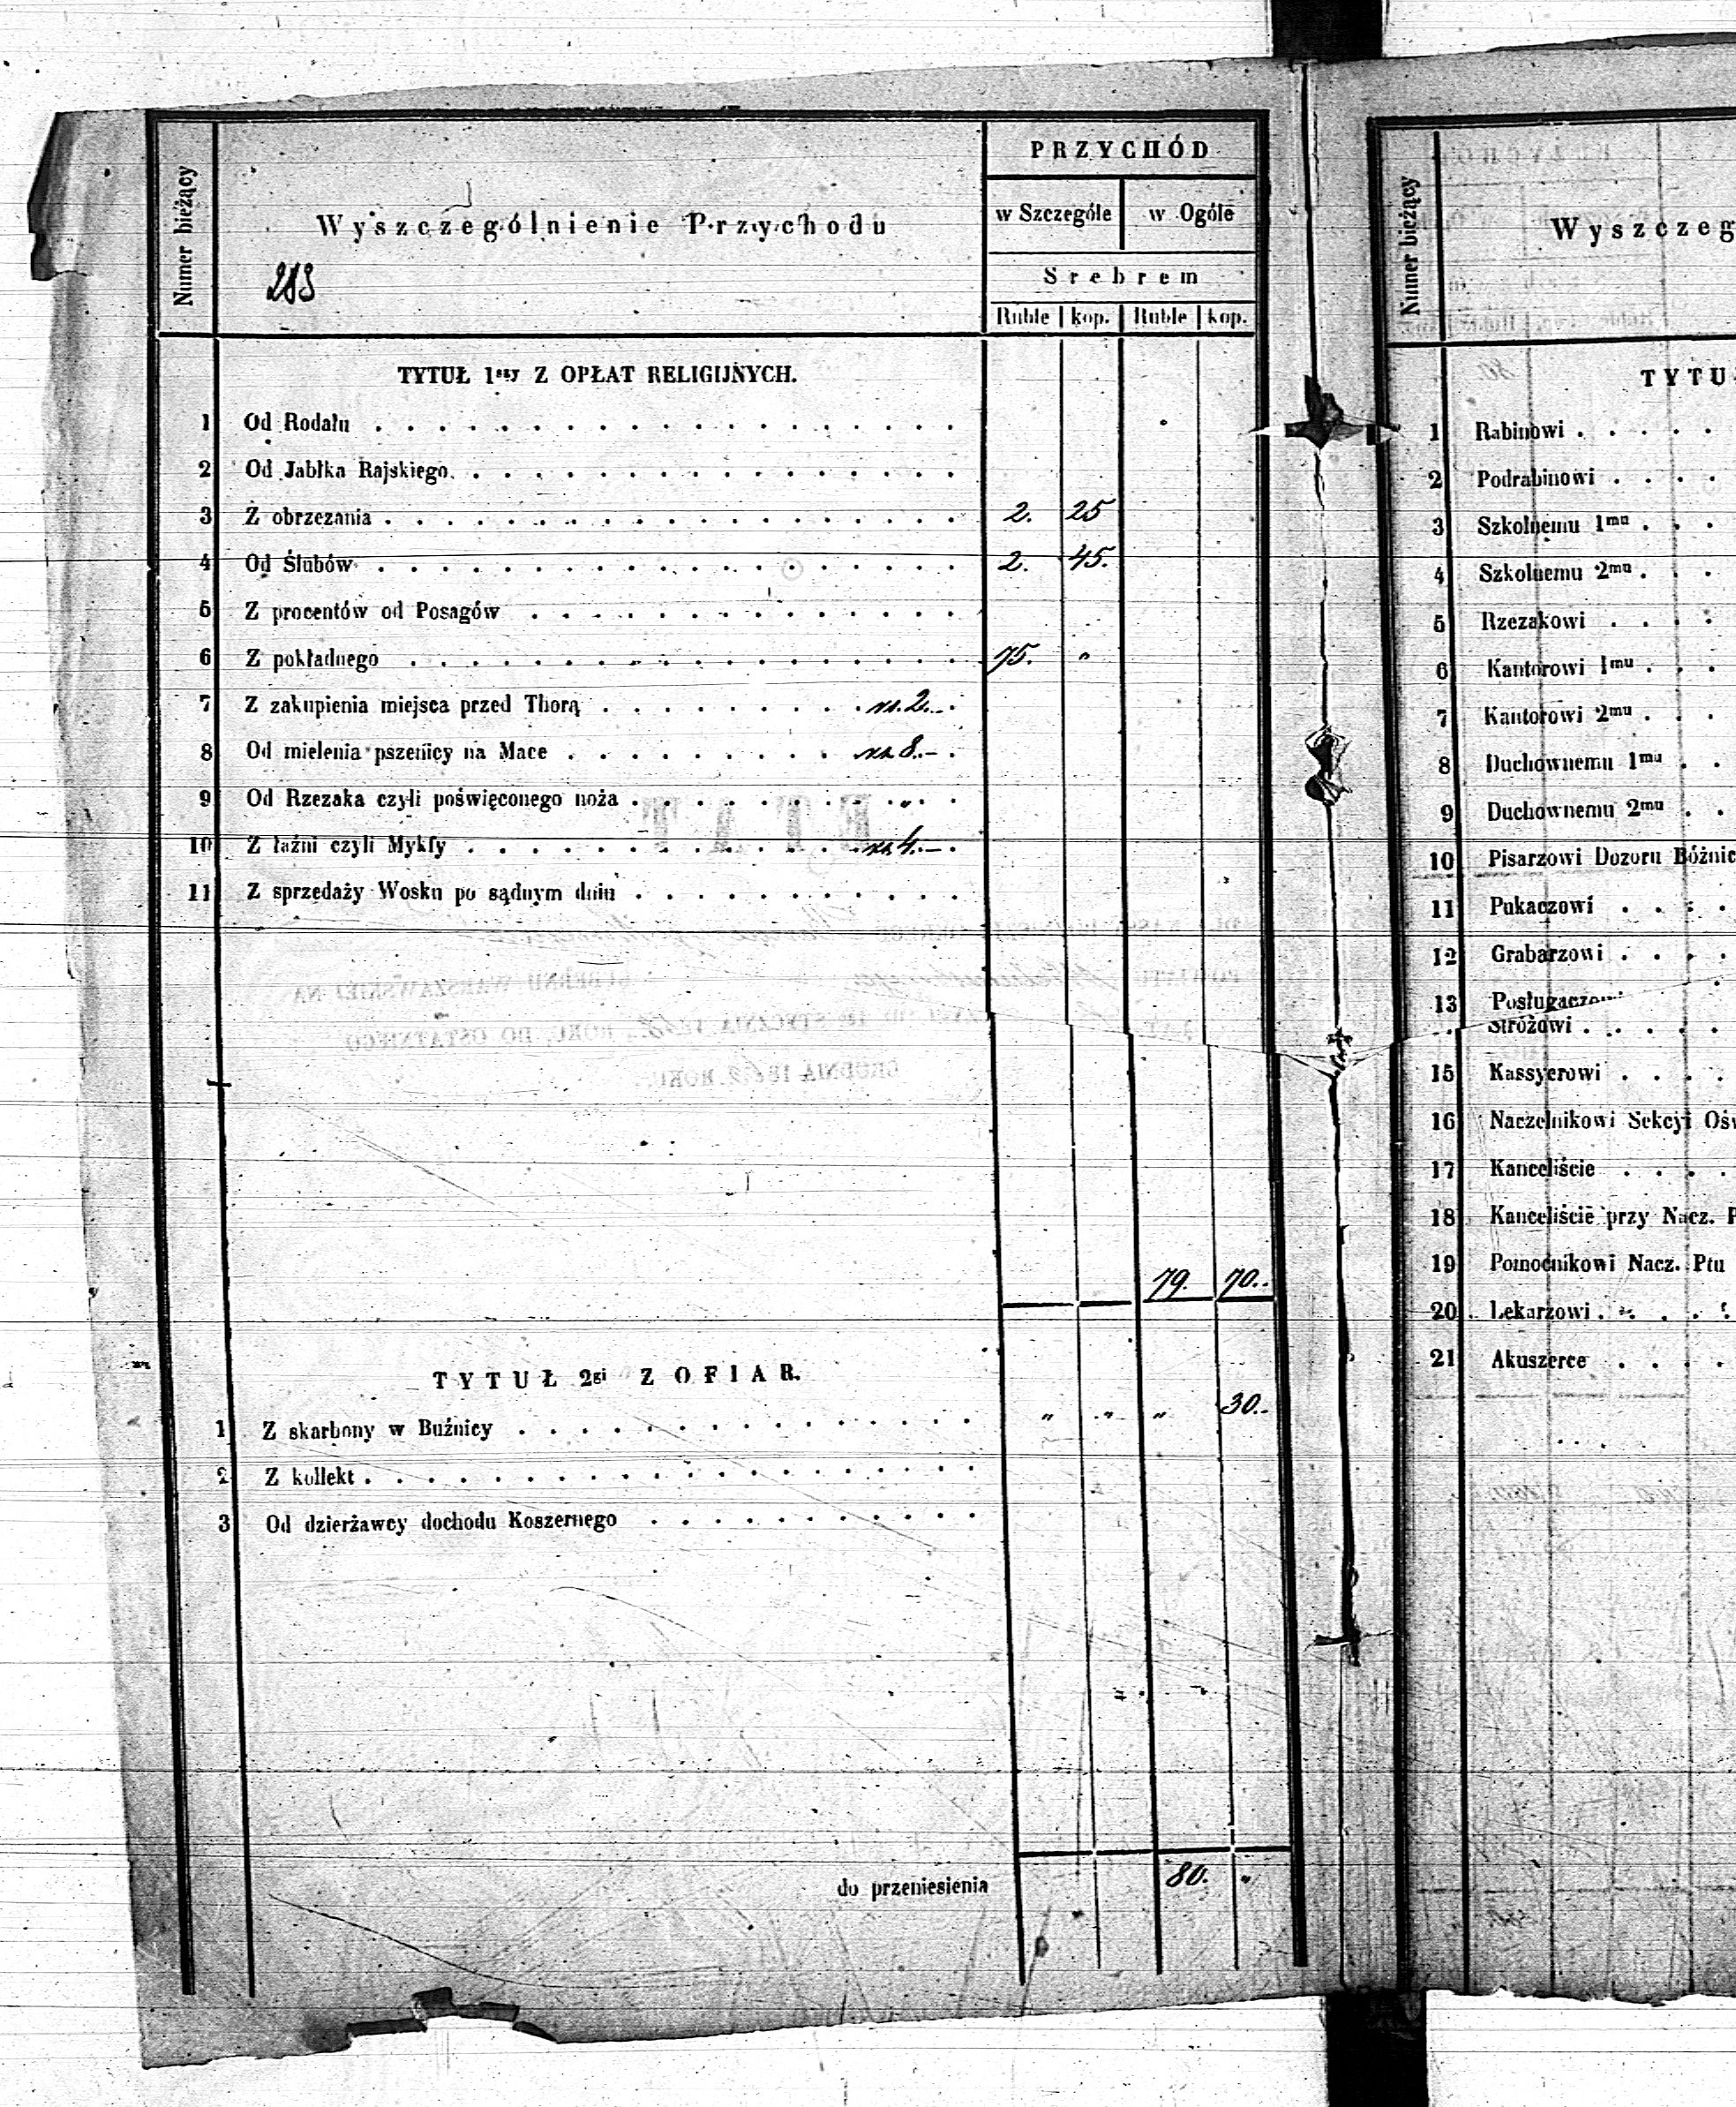 Numer bieżący
Wyszczególnienie Przychodu
PRZYCHÓD
w Szczególe w Ogóle
Srebrem
Ruble kop. Ruble kop.
283
TYTUŁ 1szy Z OPŁAT RELIGIJNYCH.
1 Od Rodału
2 Od Jabłka Rajskiego
3 Z obrzezania 2. 25
4 Od Ślubów 2. 45.
5 Z procentów od Posagów
6 Z pokładnego 75. "
7 Z zakupienia miejsca przed Thorą 2.
8 Od mielenia pszenicy na Mace 8.–
9 Od Rzezaka czyli poświęconego noża "
10 Z łaźni czyli Mykfy 4.–
11 Z sprzedaży Wosku po sądnym dniu
79. 70.
TYTUŁ 2gi Z OFIAR.
1 Z skarbony w Buźnicy " " " 30.
2 Z kollekt
3 Od dzierżawcy dochodu Koszernego
do przeniesienia 80. "
Numer bieżący
Wyszczeg
TYTU
1 Rabinowi
2 Podrabinowi
3 Szkolnemu 1mu
4 Szkolnemu 2mu
5 Rzezakowi
6 Kantorowi 1mu
7 Kantorowi 2mu
8 Duchownemu 1mu
9 Duchownemu 2mu
10 Pisarzowi Dozoru Bóżnic
11 Pukaczowi
12 Grabarzowi
13 Posługaczowi
Stróżowi
15 Kassyerowi
16 Naczelnikowi Sekcyi Ośw
17 Kanceliście
18 Kanceliście przy Nacz. P
19 Pomocnikowi Nacz. Ptu
20 Lekarzowi
21 Akuszerce